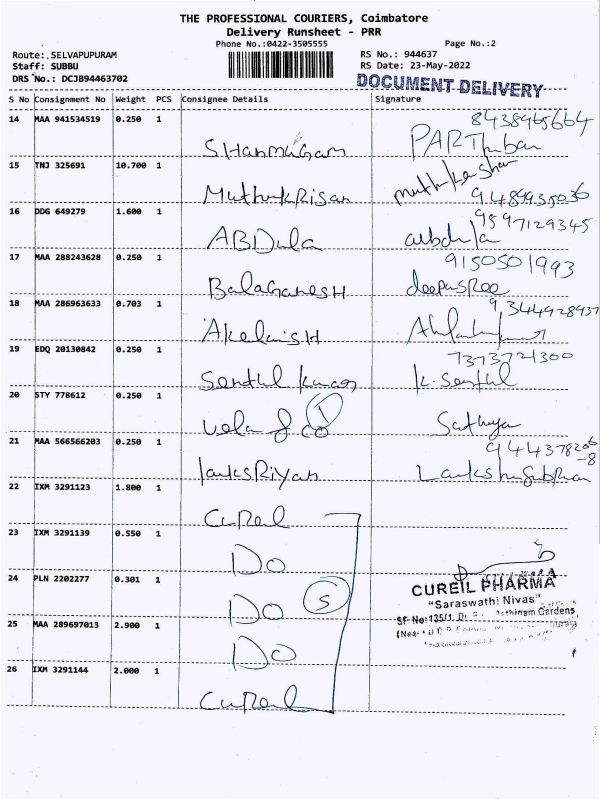 THE PROFESSIONAL COURIERS, Coimbatore
Delivery Runsheet - PRR
Phone No.:0422-3505555 Page No.:2
Route: SELVAPUPURAM RS No.: 944637
Staff: SUBBU RS Date: 23-May-2022
DRS No.: DCJB94463702 DOCUMENT DELIVERY
S No Consignment No Weight PCS Consignee Details Signature
14 MAA 941534519 0.250 1 8438965664
Shanmugam PARThiban
15 TNJ 325691 10.700 1
MuthukRisan 9489935036
16 DDG 649279 1.600 1 9597129345
ABDula abdula
17 MAA 288243628 0.250 1 9150501993
BalaGanesH deepasRee
18 MAA 286963633 0.703 1 9344928937
AkelaisH
19 EDQ 20130842 0.250 1 7373721300
Senthil kumar K. Senthil
20 STY 778612 0.250 1
vela & co 1 Sathya
21 MAA 566566203 0.250 1 944378206
-8
lanksRiyan
22 IXM 3291123 1.800 1
CuReil
23 IXM 3291139 0.550 1
Do
24 PLN 2202277 0.301 1 CUREIL PHARMA
Do 5 "Saraswathi Nivas"
25 MAA 289697013 2.900 1 SF No:135/1, Gardens
Do (Near
26 IXM 3291144 2.000 1
CuReil